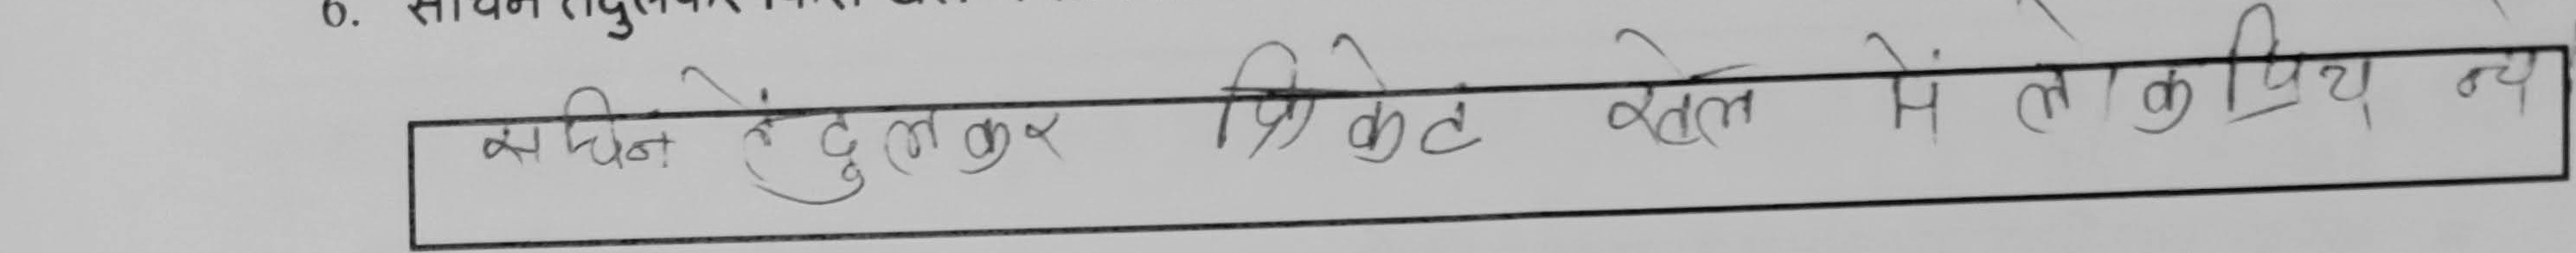 6. सचिन तेंदुलकर किस खेल
सचिन तेंदुलकर क्रिकेट खेल में लोकप्रिय